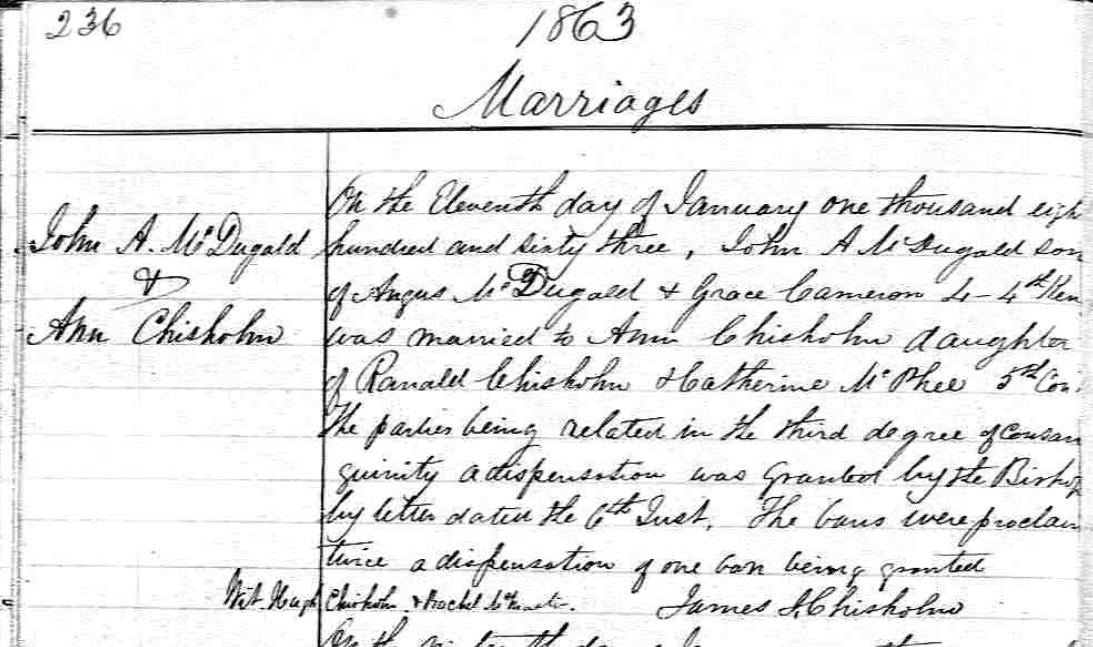 236
1863
Marriages
John A. McDugald
&
Ann Chisholm
On the Eleventh day of January one thousand eigh
hundred and sixty three, John A McDugald son
of Angus McDugald & Grace Cameron 4 - 4th Ken
was married to Ann Chisholm daughter
of Ranald Chisholm & Catherine McPhee 5th Con.
The parties being related in the third degree of consan
guinity a dispensation was granted by the Bishop
by letter dated the 6th Inst. The bans were proclaim
twice a dispensation of one ban being granted
Wit. Hugh Chisholm & Rachel
James J. Chisholm
On the day